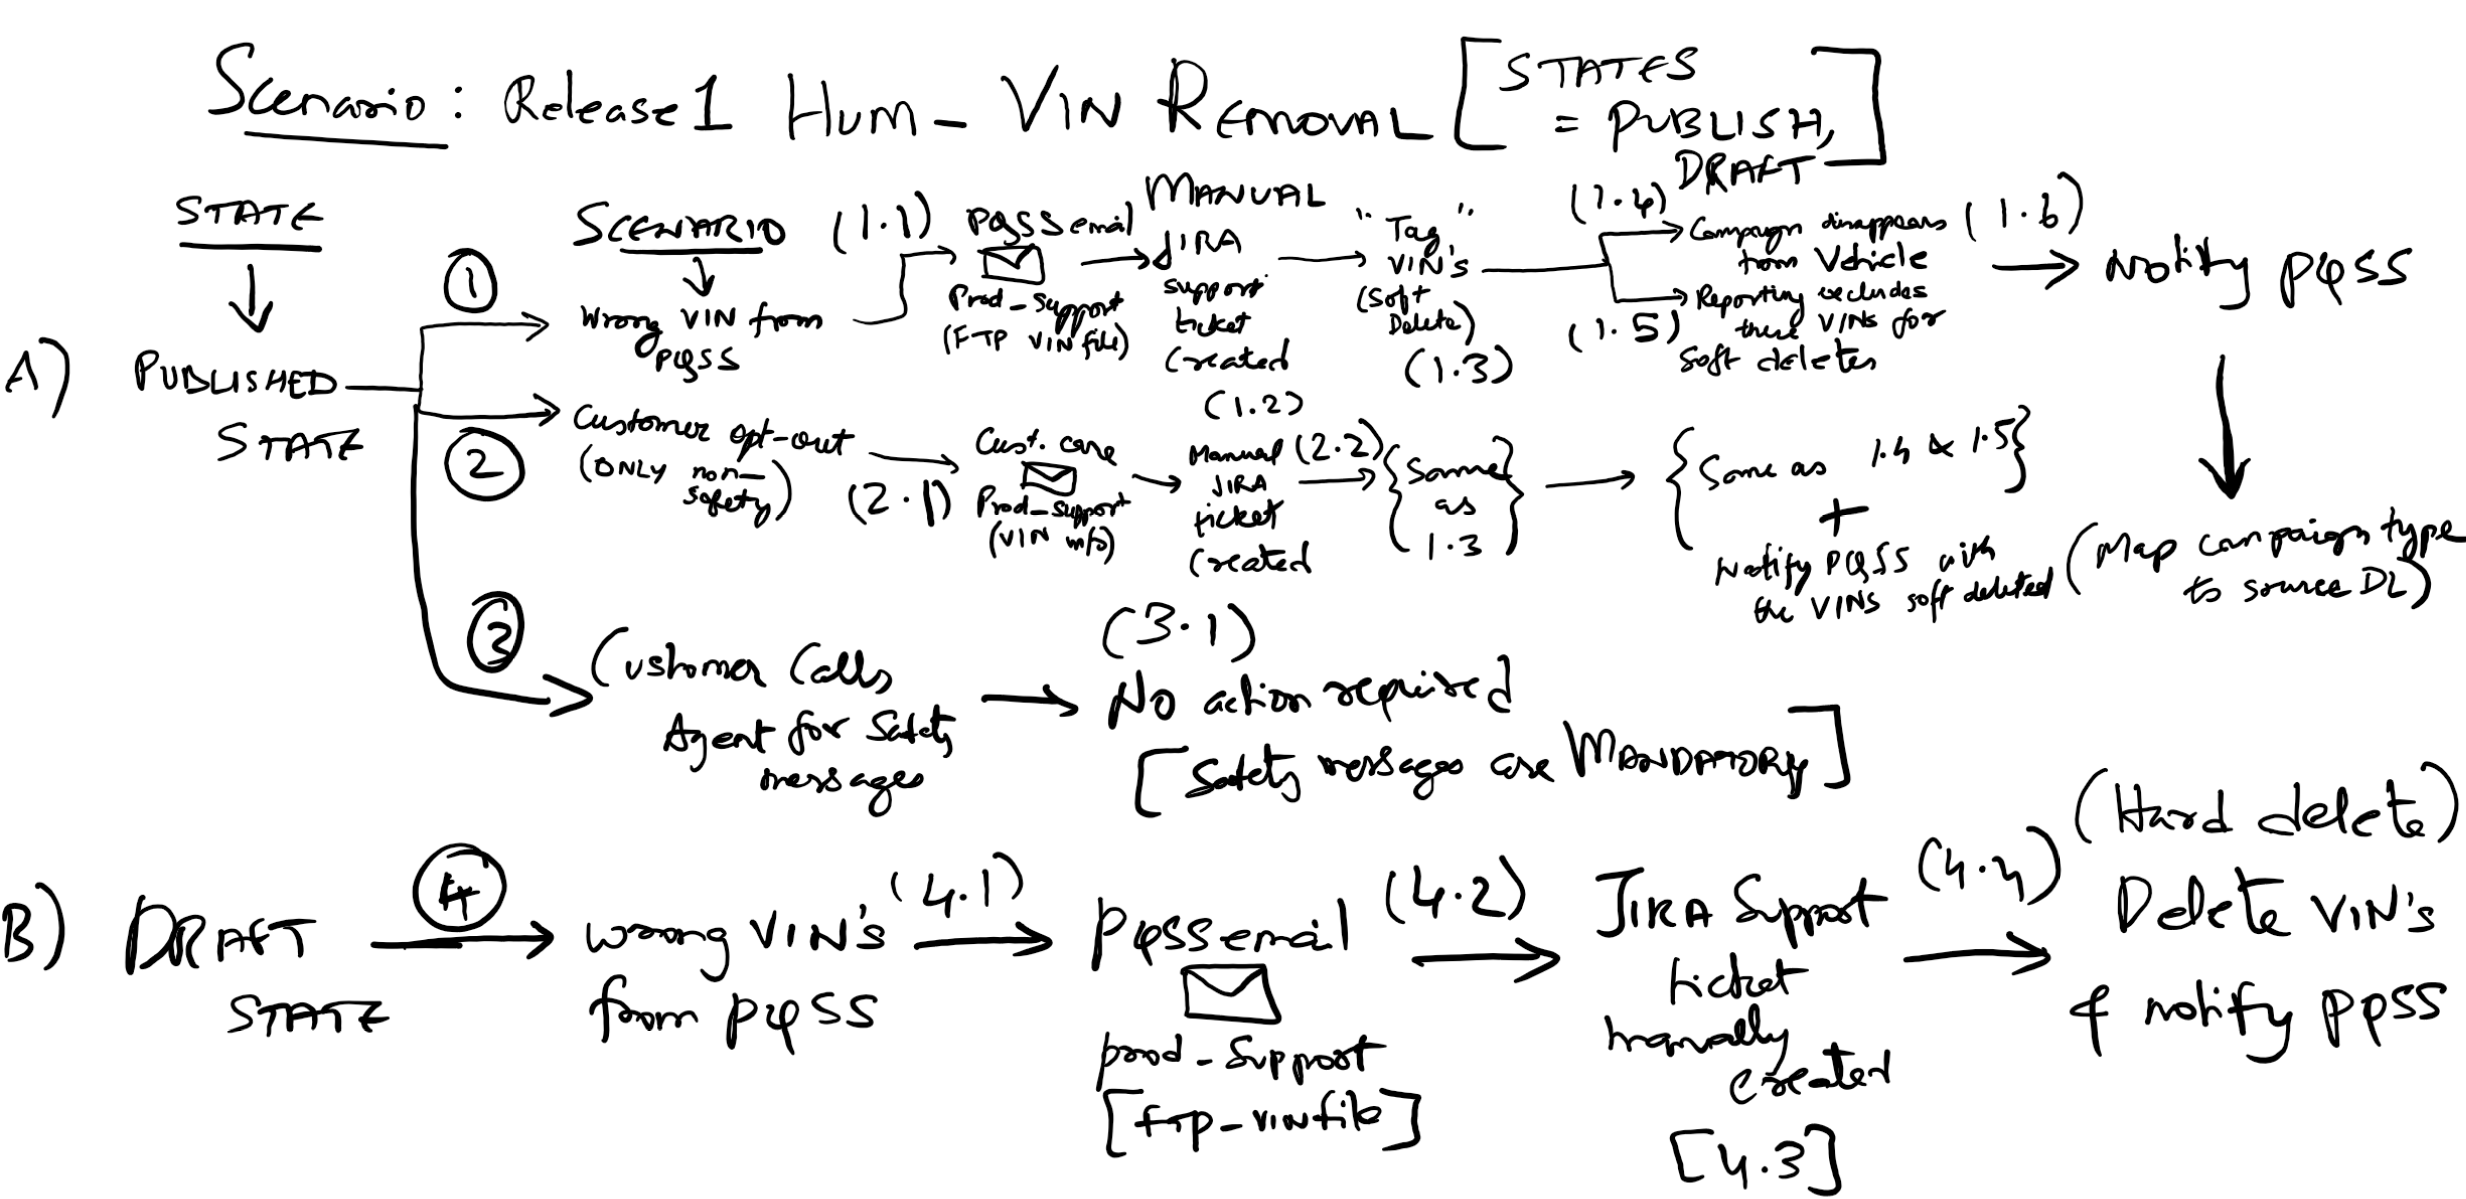 Scenario: Release 1 HUM_ VIN REMOVAL [STATES
= PUBLISH,
DRAFT]
STATE
SCENARIO
A) PUBLISHED
STATE
①
Wrong VIN from
PQSS
(1.1)
PQSS email
Prod_support
(FTP VIN file)
MANUAL
JIRA
support
ticket
Created
(1.2)
"Tag"
VIN's
(Soft
Delete)
(1.3)
(1.4)
Campaign disappears
from Vehicle
(1.5)
Reporting excludes
these VINs for
Soft deletes
(1.6)
Notify PQSS
(Map campaign type
to source DL)
②
Customer opt-out
(ONLY non-
safety)
(2.1)
Cust. care
Prod_support
(VIN info)
Manual
JIRA
ticket
Created
(2.2)
{Same
as
1.3}
{Same as 1.4 & 1.5}
+
Notify PQSS with
the VINS soft deleted
③
Customer Calls
Agent for Safety
messages
(3.1)
No action required
[Safety messages are MANDATORY]
B) DRAFT
STATE
④
wrong VIN's
from PQSS
(4.1)
PQSS email
prod-support
[FTP-VIN file]
(4.2)
JIRA Support
ticket
manually
created
[4.3]
(4.4)
(Hard delete)
Delete VIN's
& notify PQSS